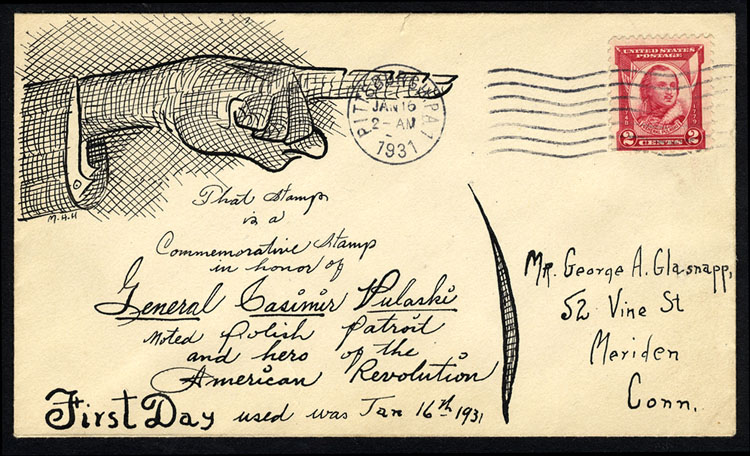 PITTSBURGH
JAN 16
2-AM
1931
PA1
UNITED STATES
POSTAGE
2 2
CENTS
M.H.H
That Stamp
is a
Commemorative Stamp
in honor of
General Casimir Pulaski
Noted Polish Patriot
and hero of the
American Revolution
First Day used was Jan 16th 1931
Mr. George A. Glasnapp,
52 Vine St
Meriden
Conn.